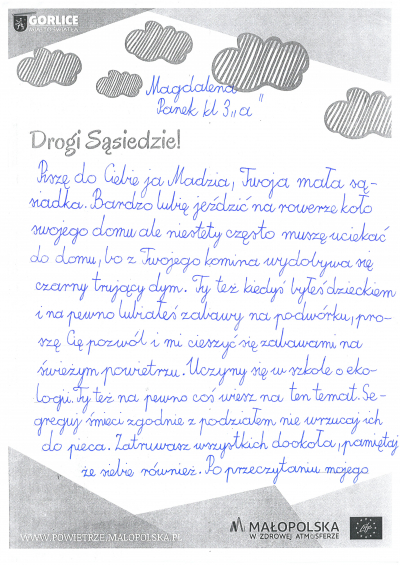 GORLICE
Magdalena
Panek kl 3 „a”
Drogi Sąsiedzie!
Piszę do Ciebie ja Madzia, Twoja mała są-
siadka. Bardzo lubię jeździć na rowerze koło
swojego domu ale niestety często muszę uciekać
do domu, bo z Twojego komina wydobywa się
czarny trujący dym. Ty też kiedyś byłeś dzieckiem
i na pewno lubiałeś zabawy na podwórku, pro-
szę Cię pozwól i mi cieszyć się zabawami na
świeżym powietrzu. Uczymy się w szkole o eko-
logii. Ty też na pewno coś wiesz na ten temat. Se-
greguj śmieci zgodnie z podziałem nie wrzucaj ich
do pieca. Zatruwasz wszystkich dookoła, pamiętaj
że siebie również. Po przeczytaniu mojego
WWW.POWIETRZE.MALOPOLSKA.PL
MAŁOPOLSKA
W ZDROWEJ ATMOSFERZE